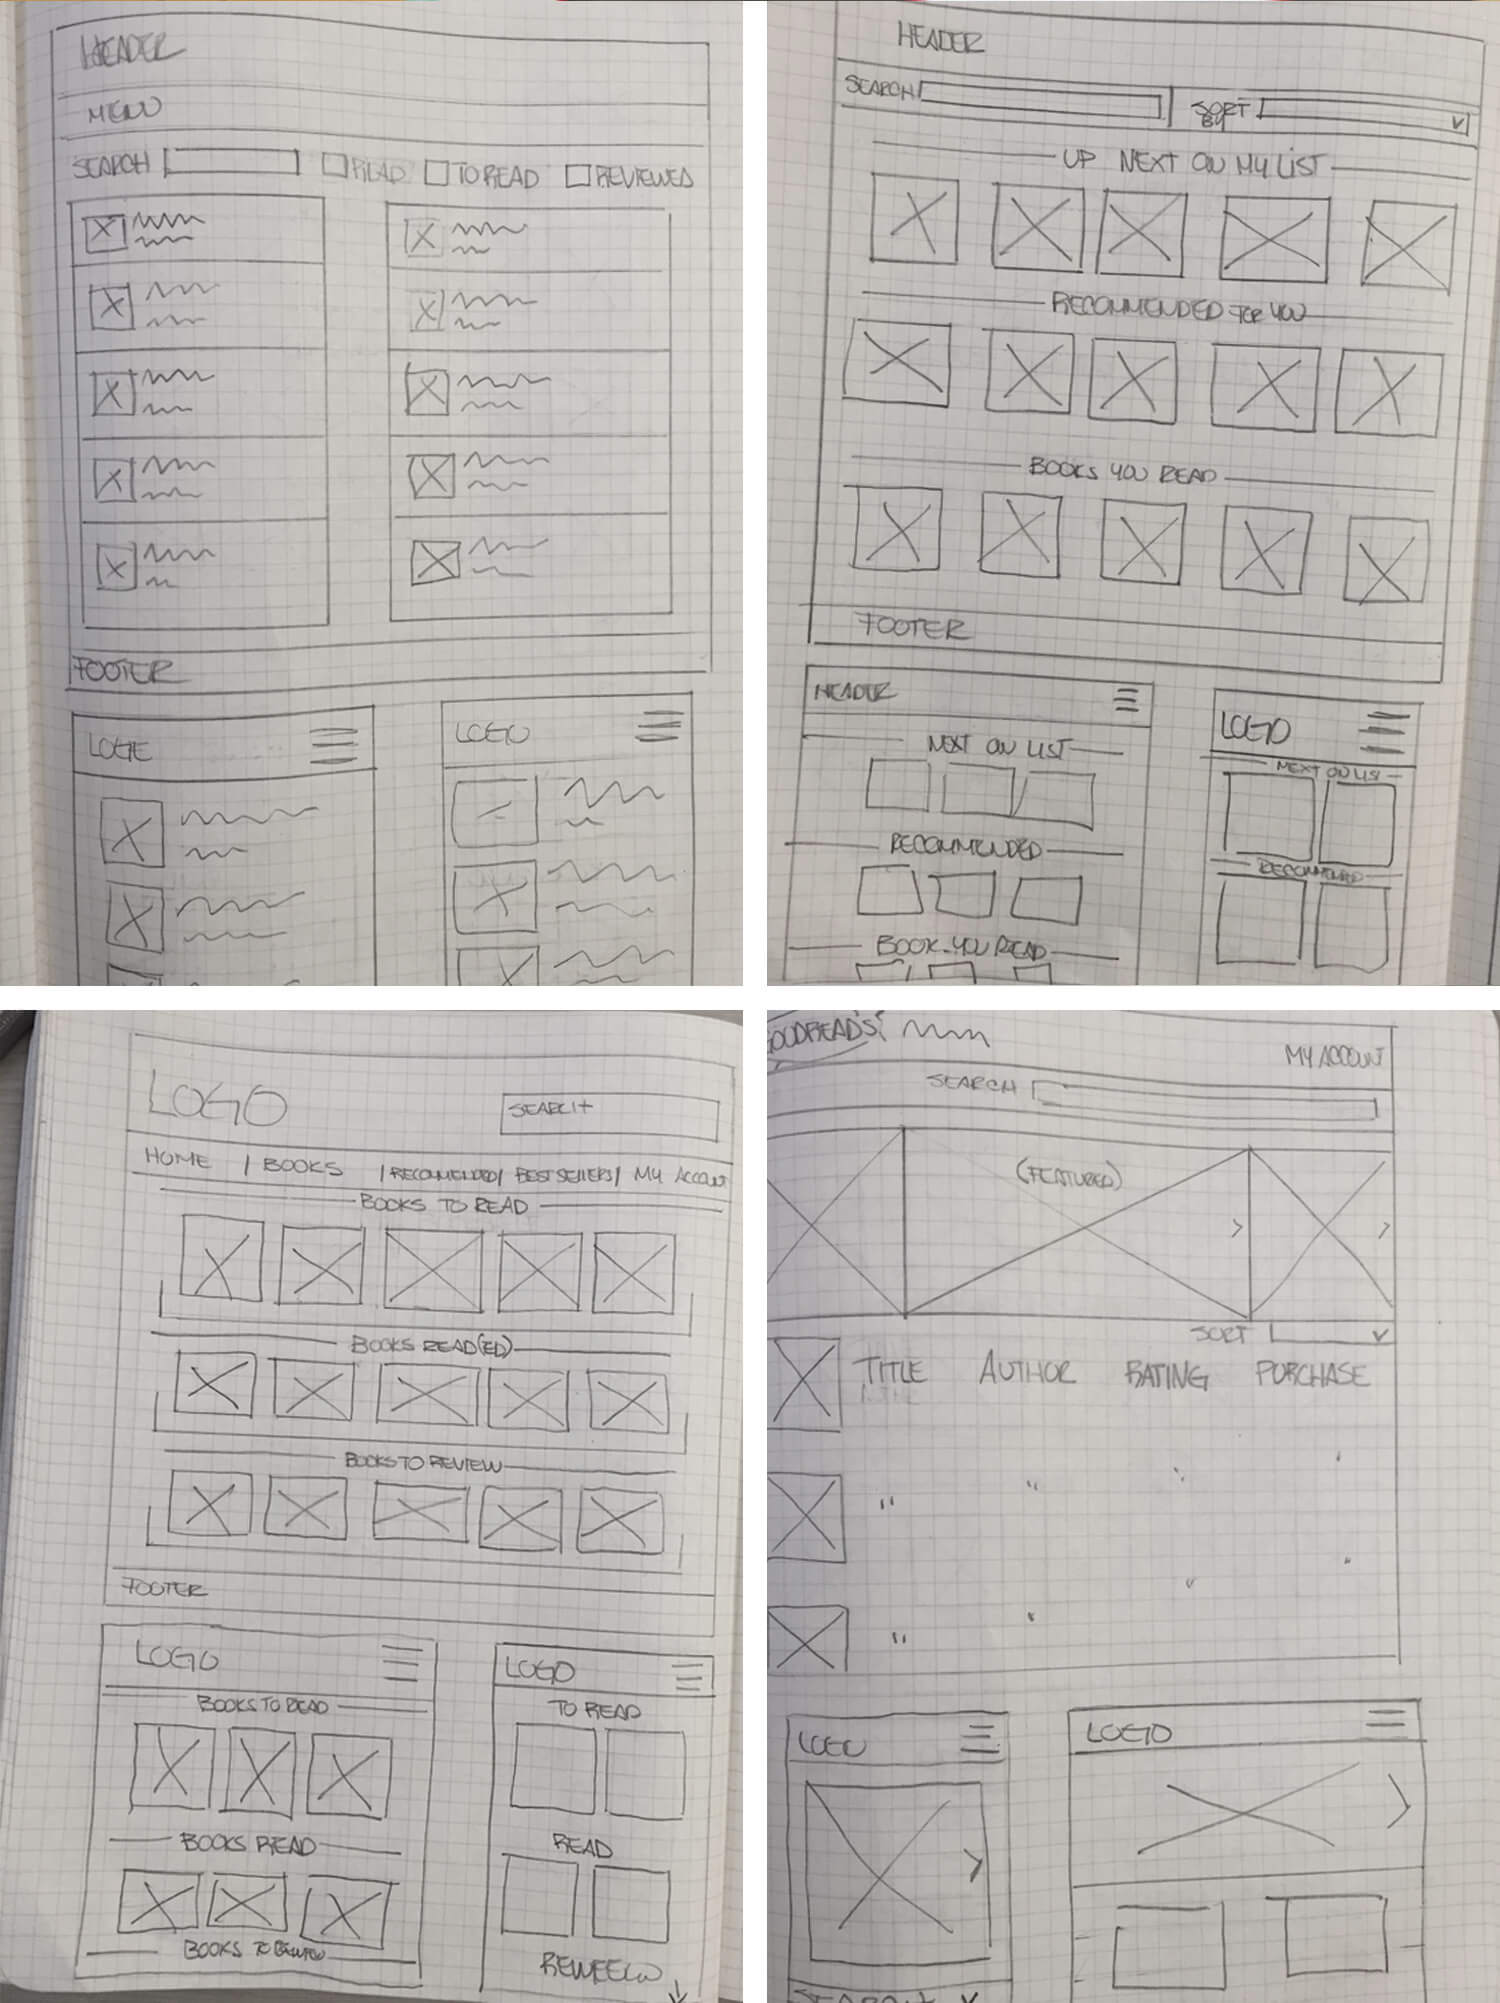 HEADER
MENU
SEARCH READ TO READ REVIEWED
FOOTER
LOGO
LOGO
HEADER
SEARCH SORT BY
UP NEXT ON MY LIST
RECOMMENDED FOR YOU
BOOKS YOU READ
FOOTER
HEADER
NEXT ON LIST
RECOMMENDED
BOOK YOU READ
LOGO
NEXT ON LIST
RECOMMENDED
LOGO
SEARCH
HOME | BOOKS | RECOMMENDED | BEST SELLERS | MY ACCOUNT
BOOKS TO READ
BOOKS READ(ED)
BOOKS TO REVIEW
FOOTER
LOGO
BOOKS TO READ
BOOKS READ
BOOKS TO REVIEW
LOGO
TO READ
READ
OODREADS
MY ACCOUNT
SEARCH
(FEATURED)
SORT
TITLE AUTHOR RATING PURCHASE
LOGO
LOGO